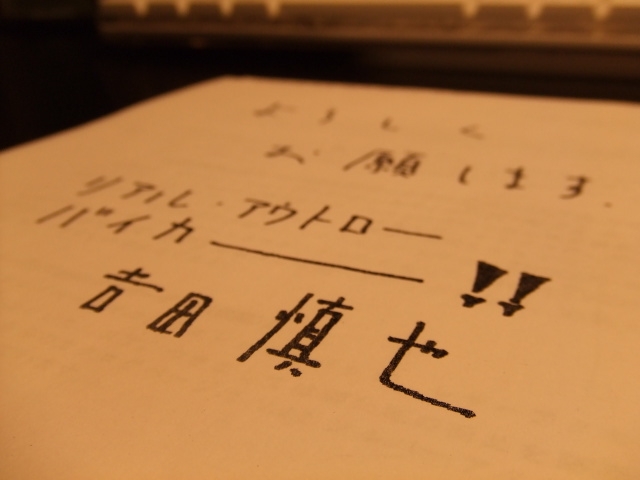 よろしく
お願いします.
リアル・アウトロー
バイカー!!
吉田慎也